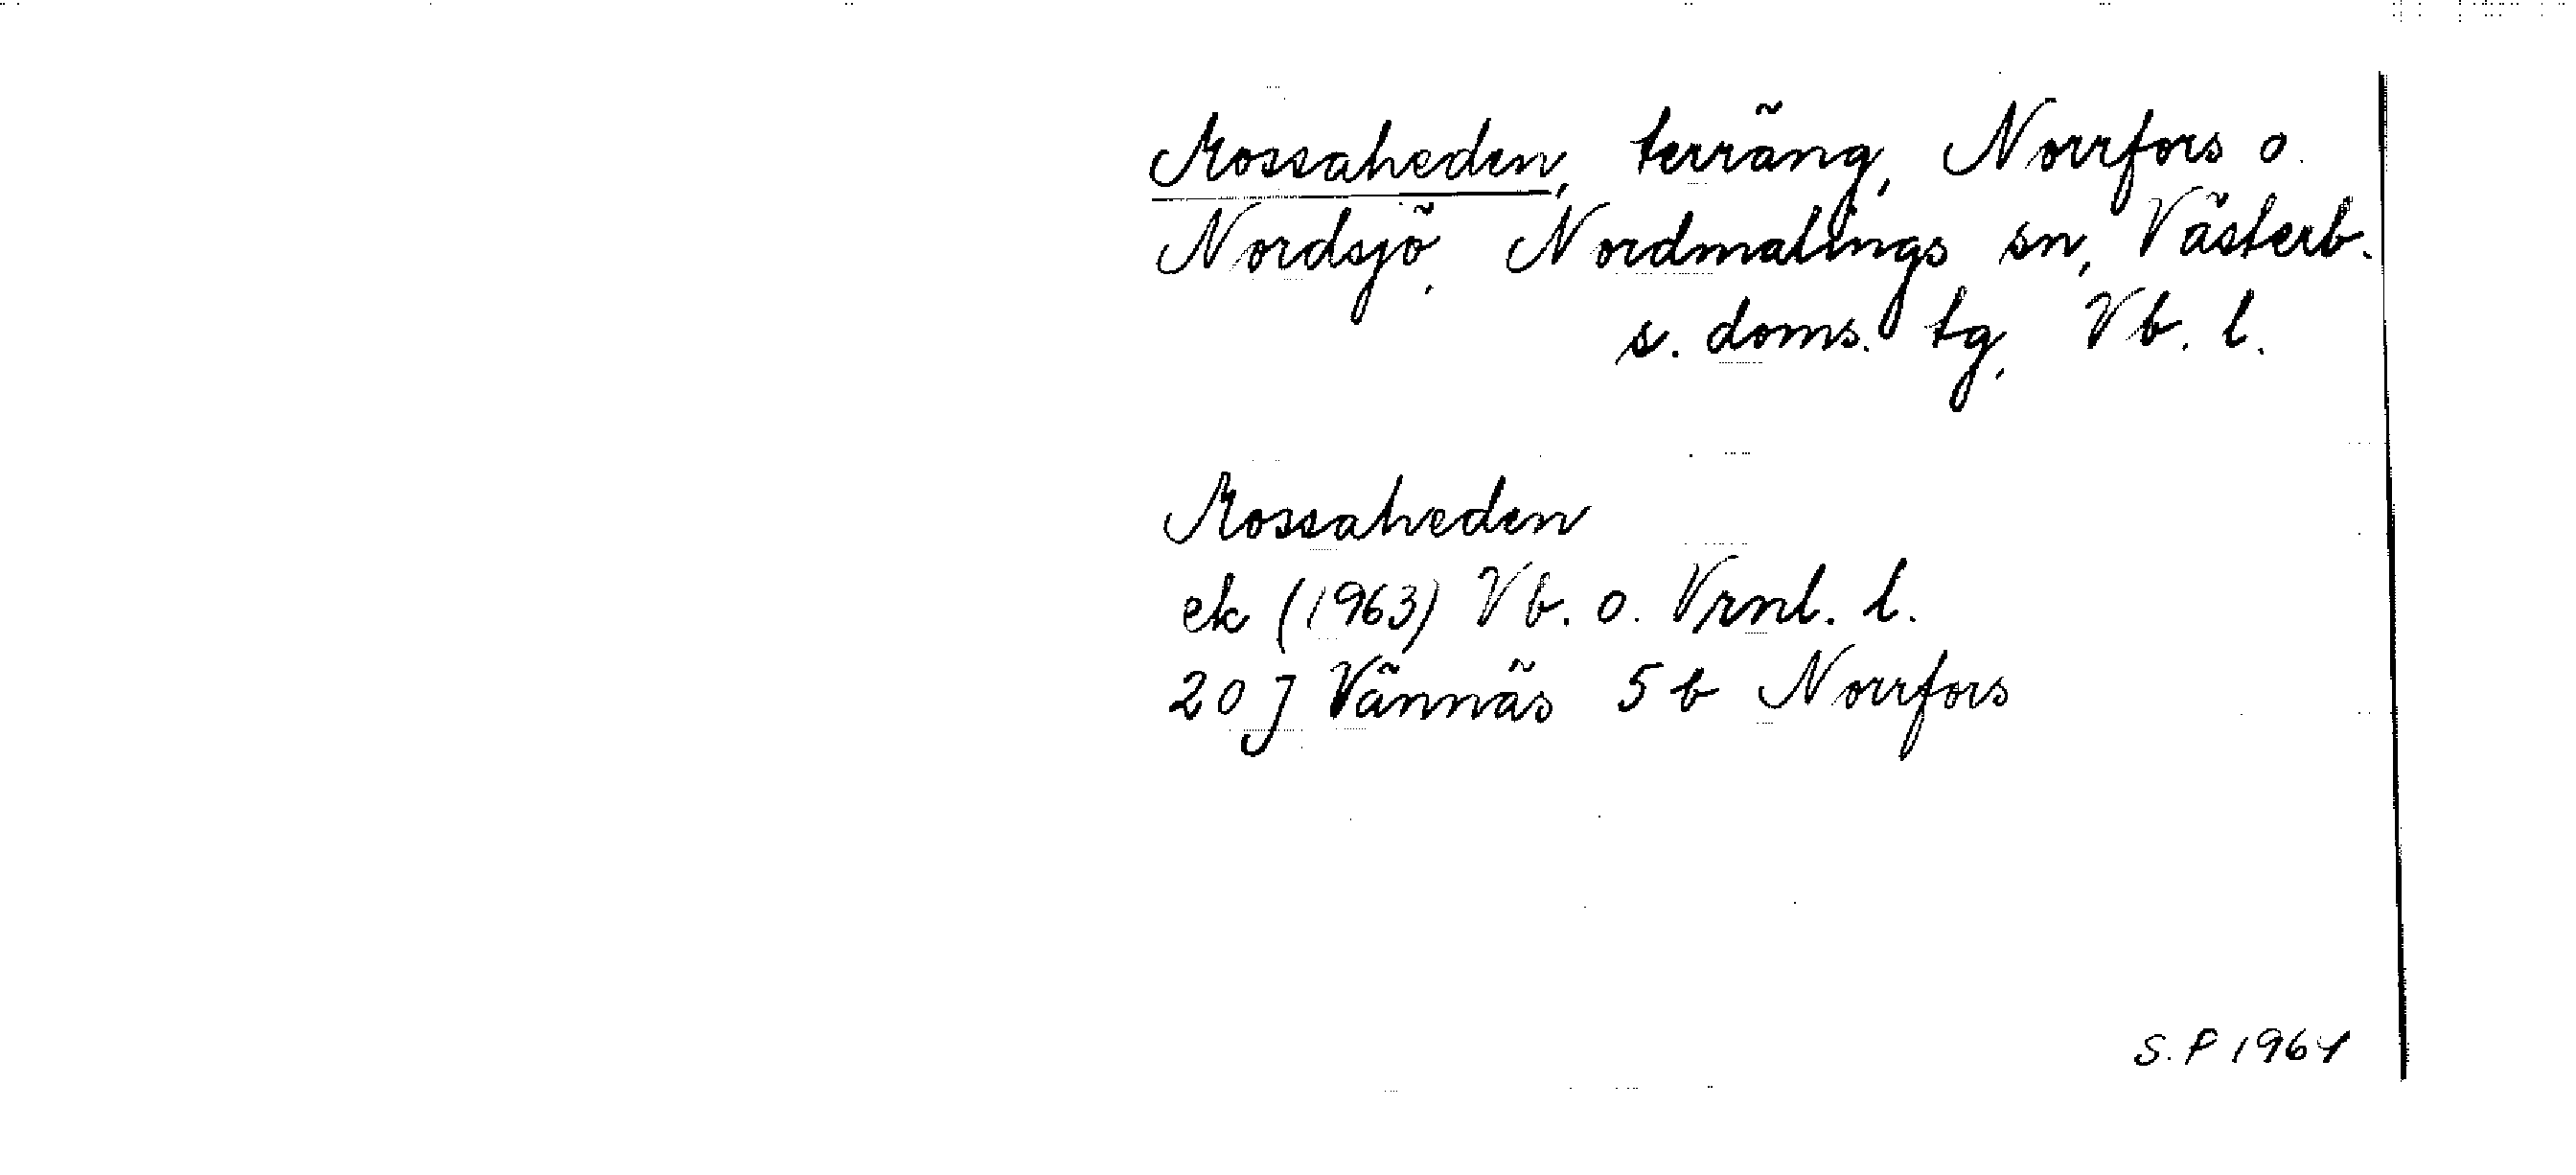 Mossaheden, terräng, Norrfors o.
Nordsjö, Nordmalings sn, Västerb.
s. doms. tg, Vb. l.
Mossaheden
ek (1963) Vb. o. Vrnl. l.
20 J Vännäs 5 b Norrfors
S. P 1964